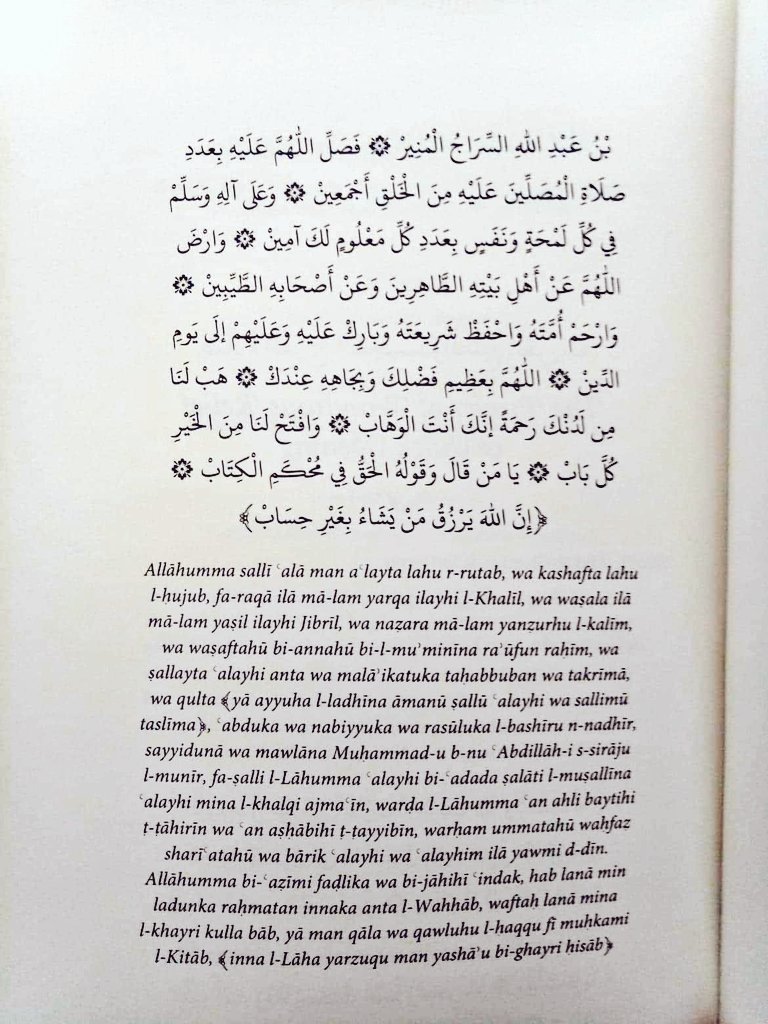 بْنُ عَبْدِ اللهِ السِّرَاجُ الْمُنِيرْ ۞ فَصَلِّ اللّٰهُمَّ عَلَيْهِ بِعَدَدِ
صَلَاةِ الْمُصَلِّينَ عَلَيْهِ مِنَ الْخَلْقِ أَجْمَعِينْ ۞ وَعَلَى آلِهِ وَسَلِّمْ
فِي كُلِّ لَمْحَةٍ وَنَفَسٍ بِعَدَدِ كُلِّ مَعْلُومٍ لَكَ آمِينْ ۞ وَارْضَ
اللّٰهُمَّ عَنْ أَهْلِ بَيْتِهِ الطَّاهِرِينَ وَعَنْ أَصْحَابِهِ الطَّيِّبِينْ ۞
وَارْحَمْ أُمَّتَهُ وَاحْفَظْ شَرِيعَتَهُ وَبَارِكْ عَلَيْهِ وَعَلَيْهِمْ إلَى يَومِ
الدِّينْ ۞ اللّٰهُمَّ بِعَظِيمِ فَضْلِكَ وَبِجَاهِهِ عِنْدَكْ ۞ هَبْ لَنَا
مِن لَدُنْكَ رَحْمَةً إنَّكَ أَنْتَ الْوَهَّابْ ۞ وَافْتَحْ لَنَا مِنَ الْخَيْرِ
كُلَّ بَابْ ۞ يَا مَنْ قَالَ وَقَوْلُهُ الْحَقُّ فِي مُحْكَمِ الْكِتَابْ ۞
﴿إِنَّ اللهَ يَرْزُقُ مَنْ يَشَاءُ بِغَيْرِ حِسَابْ﴾
Allāhumma sallī ʿalā man aʿlayta lahu r-rutab, wa kashafta lahu
l-ḥujub, fa-raqā ilā mā-lam yarqa ilayhi l-Khalīl, wa waṣala ilā
mā-lam yaṣil ilayhi Jibrīl, wa naẓara mā-lam yanẓurhu l-kalīm,
wa waṣaftahū bi-annahū bi-l-muʾminīna raʾūfun raḥīm, wa
ṣallayta ʿalayhi anta wa malāʾikatuka taḥabbuban wa takrīmā,
wa qulta ﴾yā ayyuha l-ladhīna āmanū ṣallū ʿalayhi wa sallimū
taslīma﴿, ʿabduka wa nabiyyuka wa rasūluka l-bashīru n-nadhīr,
sayyidunā wa mawlāna Muḥammad-u b-nu ʿAbdillāh-i s-sirāju
l-munīr, fa-ṣalli l-Lāhumma ʿalayhi bi-ʿadada ṣalāti l-muṣallīna
ʿalayhi mina l-khalqi ajmaʿīn, warḍa l-Lāhumma ʿan ahli baytihi
ṭ-ṭāhirīn wa ʿan aṣḥābihī ṭ-ṭayyibīn, warḥam ummatahū waḥfaẓ
sharīʿatahū wa bārik ʿalayhi wa ʿalayhim ilā yawmi d-dīn.
Allāhumma bi-ʿaẓīmi faḍlika wa bi-jāhihī ʿindak, hab lanā min
ladunka raḥmatan innaka anta l-Wahhāb, waftaḥ lanā mina
l-khayri kulla bāb, yā man qāla wa qawluhu l-ḥaqqu fī muḥkami
l-Kitāb, ﴾inna l-Lāha yarzuqu man yashāʾu bi-ghayri ḥisāb﴿